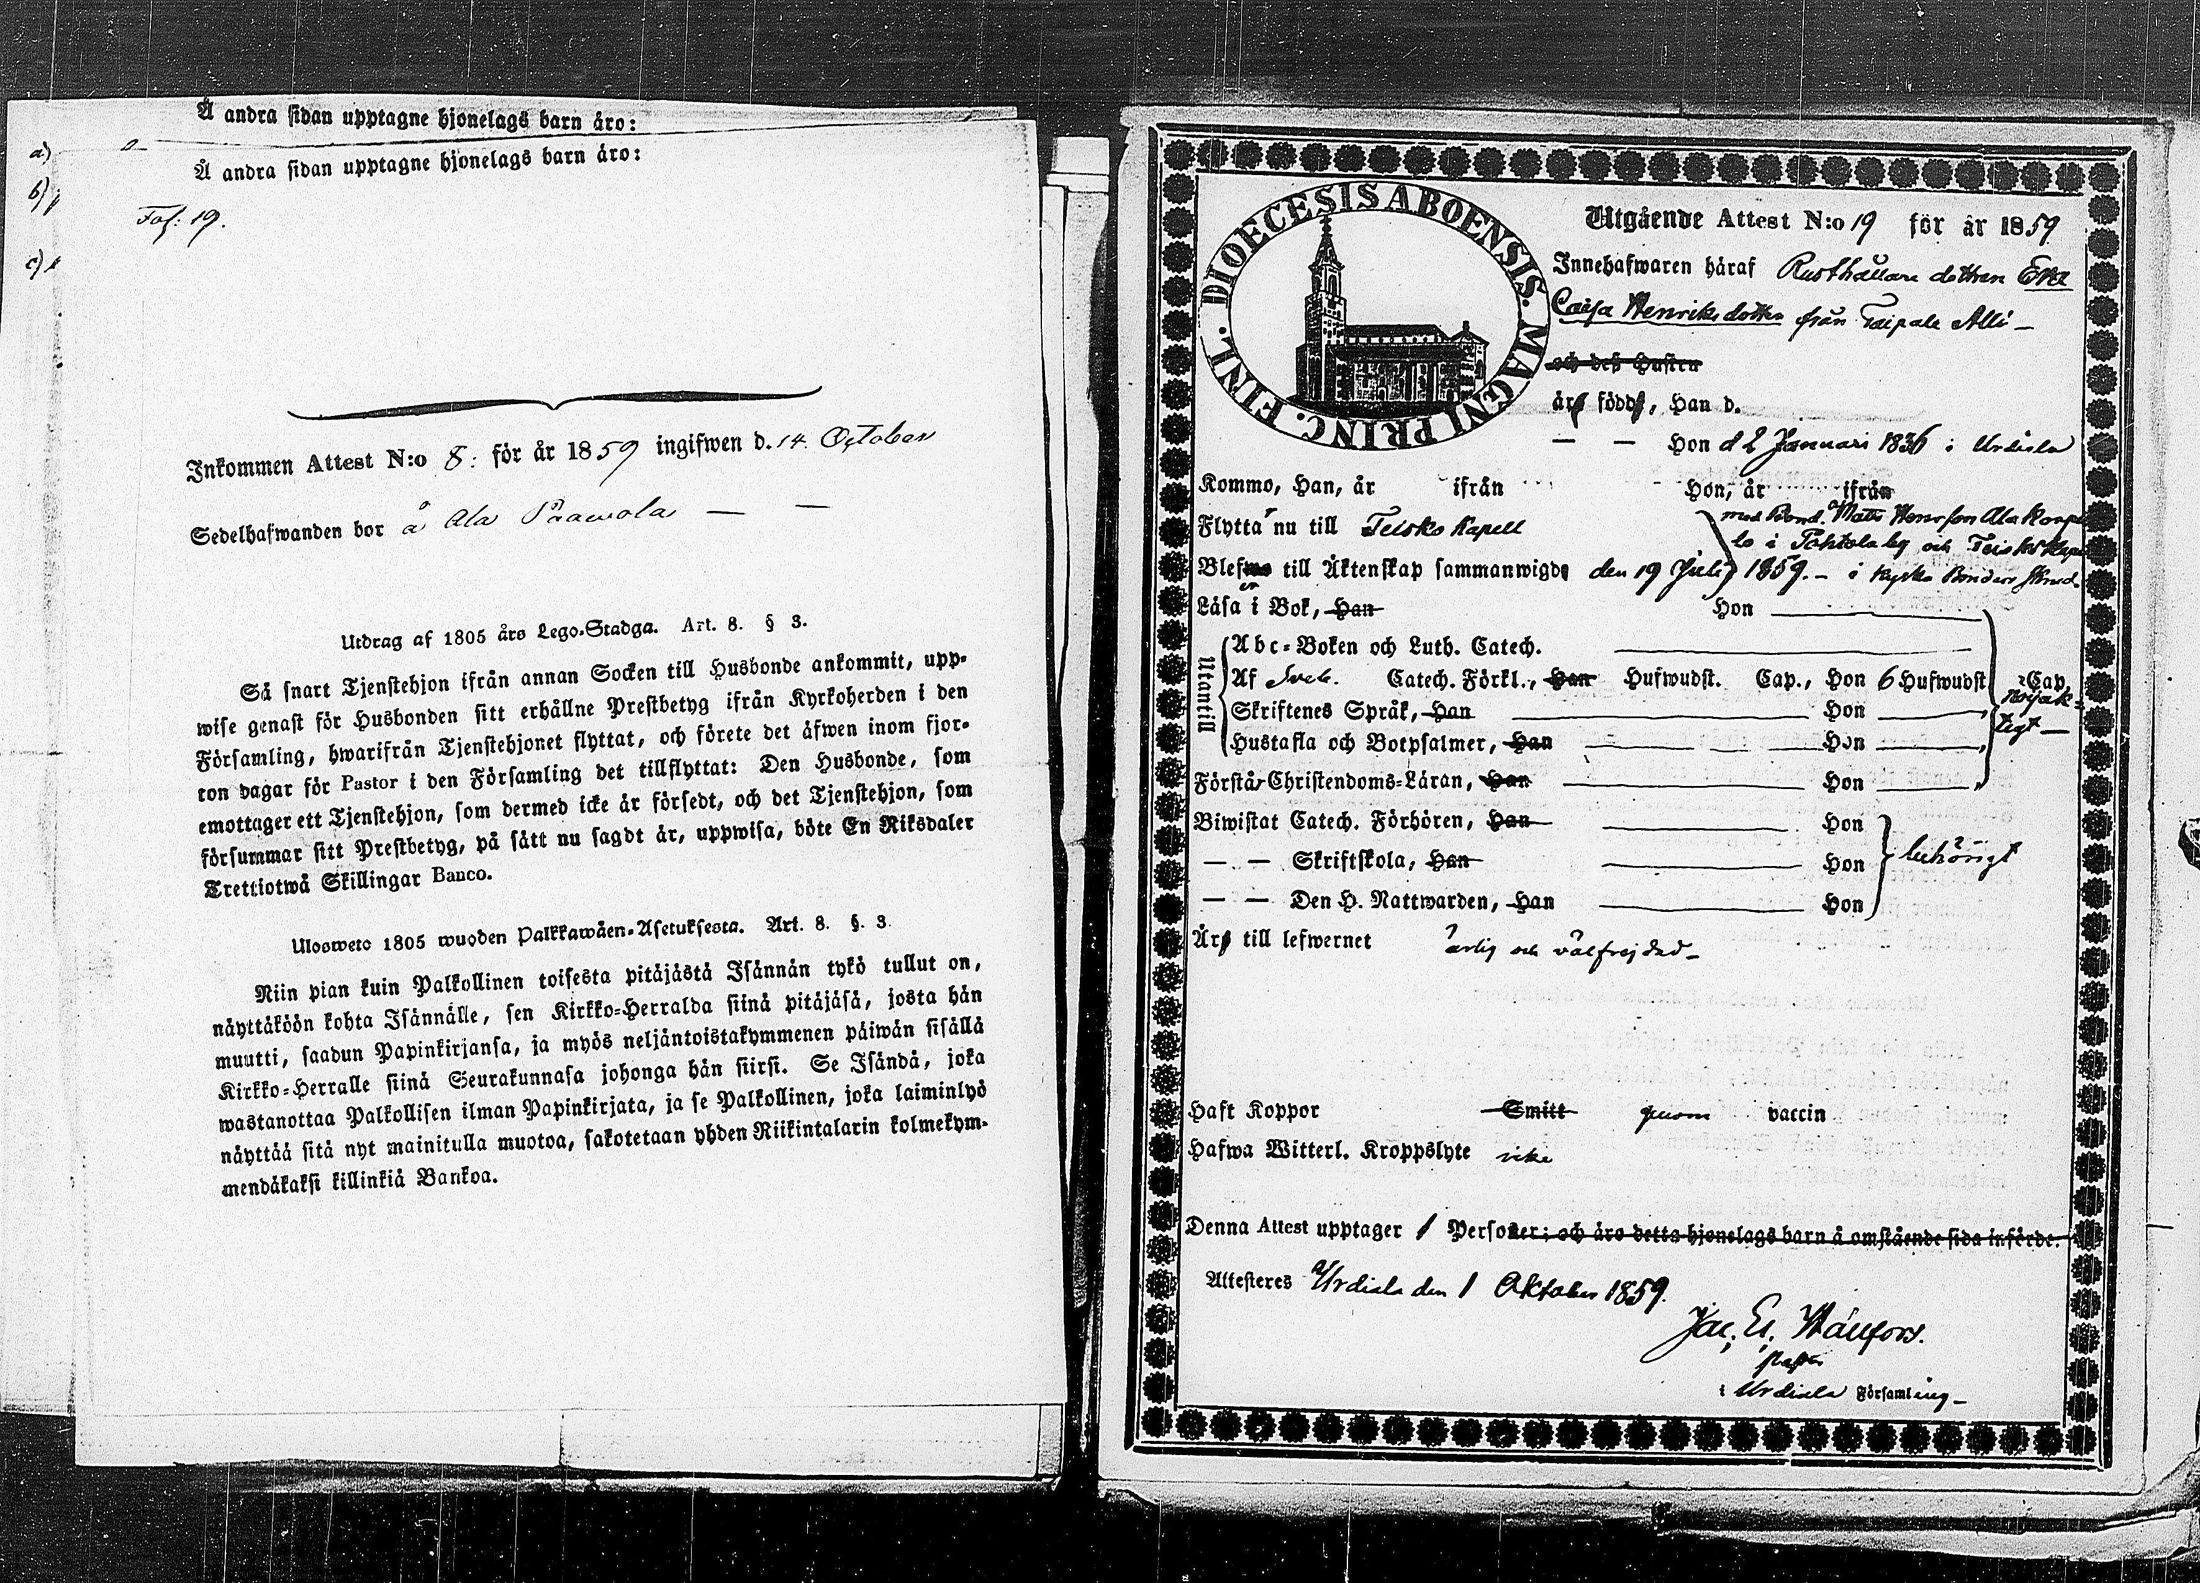 Å andra sidan upptagne hjonelags barn äro:
a)
Å andra sidan upptagne hjonelags barn äro:
b)
Fol: 19.
c)
Inkommen Attest N:o 8: för år 1859 ingifwen d. 14. October
Sedelhafwanden bor å Ala Paawola — —
Utdrag af 1805 års Lego-Stadga. Art. 8. § 3.
Så snart Tjenstehjon ifrån annan Socken till Husbonde ankommit, upp-
wise genast för Husbonden sitt erhållne Prestbetyg ifrån Kyrkoherden i den
Församling, hwarifrån Tjenstehjonet flyttat, och förete det äfwen inom fjor-
ton dagar för Pastor i den Församling det tillflyttat: Den Husbonde, som
emottager ett Tjenstehjon, som dermed icke är försedt, och det Tjenstehjon, som
försummar sitt Prestbetyg, på sätt nu sagdt är, uppwisa, böte En Riksdaler
Trettiotwå Skillingar Banco.
Ulosweto 1805 wuoden Palkkawäen-Asetuksesta. Art. 8. §. 3.
Niin pian kuin Palkollinen toisesta pitäjästä Isännän tykö tullut on,
näyttäköön kohta Isännälle, sen Kirkko-Herralda siinä pitäjäsä, josta hän
muutti, saadun Papinkirjansa, ja myös neljäntoistakymmenen päiwän sisällä
Kirkko-Herralle siinä Seurakunnasa johonga hän siirsi. Se Isändä, joka
wastanottaa Palkollisen ilman Papinkirjata, ja se Palkollinen, joka laiminlyö
näyttää sitä nyt mainitulla muotoa, sakotetaan yhden Riikintalarin kolmekym-
mendäkaksi killinkiä Bankoa.
DIOECESIS ABOENSIS. MAGNI PRINC. FINL.
Utgående Attest N:o 19 för år 1859
Innehafwaren häraf Rusthållare dottren Eva
Caisa Henriksdotter från Taipale Alli —
och deß Hustru
äro födde, Han d.
— — Hon d 2 Januari 1836 i Urdiala
Kommo, Han, år ifrån Hon, år ifrån
Flytta nu till Teisko Kapell
med Bond. Mats Henrsson Ala
to i Pohtola by och Teisko Kapell
Blefwo till Äktenskap sammanwigde den 19 Juli 1859. — i
Läsa i Bok, Han Hon
Utantill
Abc-Boken och Luth. Catech.
Af Sveb. Catech. Förkl., Han Hufwudst. Cap., Hon 6 Hufwudst Cap.
nöjak-
tigt —
Skriftenes Språk, Han Hon
Hustafla och Botpsalmer, Han Hon
Förstå Christendoms-Läran, Han Hon
Biwistat Catech. Förhören, Han Hon
— — Skriftskola, Han Hon behörigt
— — Den H. Nattwarden, Han Hon
Äro till lefwernet ärlig och välfrejdad —
Haft Koppor Smitt genom vaccin
Hafwa Witterl. Kroppslyte icke
Denna Attest upptager 1 Personer; och äro detta hjonelags barn å omstående sida införde.
Attesteres Urdiala den 1 Oktober 1859.
Jac. Er. Wänfors.
Pastor
i Urdiala Församling —